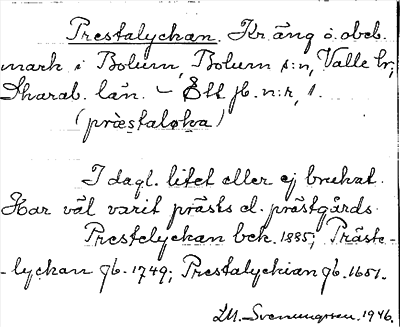 Prestalyckan. Kr. äng o. obeb.
mark i Bolum, Bolum s:n, Valle hd,
Skarab. län. - Ett jb. n:r, 1.
(præstaløka)
I dagl. litet eller ej brukat.
Har väl varit prästs el. prästgårds-
Prestelyckan bek. 1885; Präste-
-lyckan gb. 1749; Prestalychian gb. 1651.
Svenungsson. 1946.